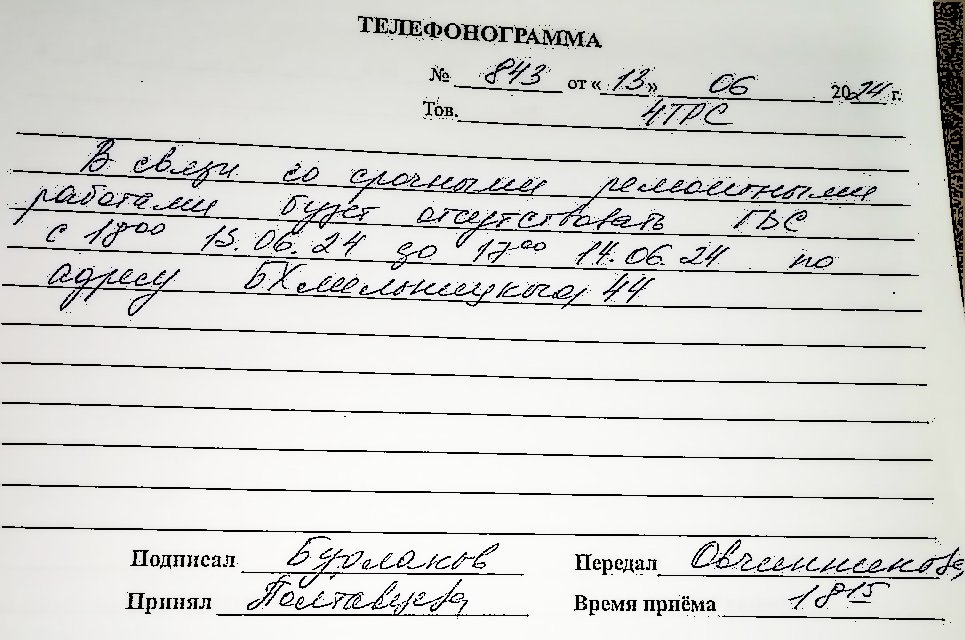 ТЕЛЕФОНОГРАММА
№ 843 от «13» 06 2024 г.
Тов. 4ТРС
В связи со срочными ремонтными
работами будет отсутствовать ГВС
с 18⁰⁰ 13.06.24 до 17⁰⁰ 14.06.24 по
адресу БХмельницкого, 44
Подписал Бурлаков Передал Овчинникова
Принял Полтавцева Время приёма 18¹⁵